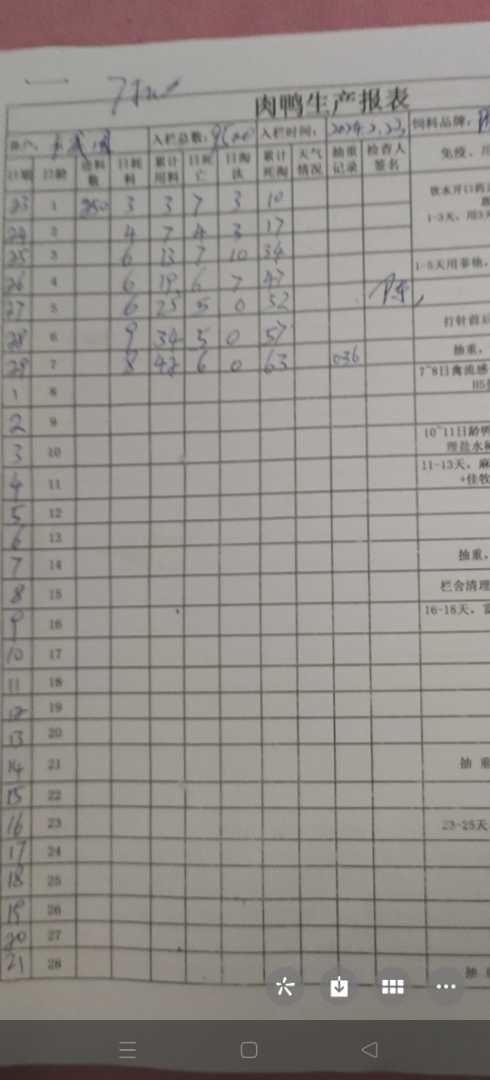 肉鸭生产报表
入栏总数: 入栏时间: 2024.2.23 饲料品牌:
日期 日龄 进料数 日耗料 累计用料 日死亡 日淘汰 累计死淘 天气情况 抽重记录 检查人签名 免疫、
23 1 250 3 3 7 3 10 饮水开口药
24 2 4 7 4 3 17 1-3天、用3
25 3 6 13 7 10 34
26 4 6 19 6 7 47 1-5天用多维,
27 5 6 25 5 0 52
28 6 9 34 5 0 57 打针前
29 7 8 42 6 0 63 036 抽重,
1 8 7~8日禽流感 H5
2 9
3 10 10~11日龄鸭 理盐水
4 11 11-13天, 麻 +佳牧
5 12
6 13
7 14 抽重,
8 15 栏舍清理
9 16 16-18天,
10 17
11 18
12 19
13 20
14 21 抽重
15 22
16 23 23-25天
17 24
18 25
19 26
20 27
21 28 抽